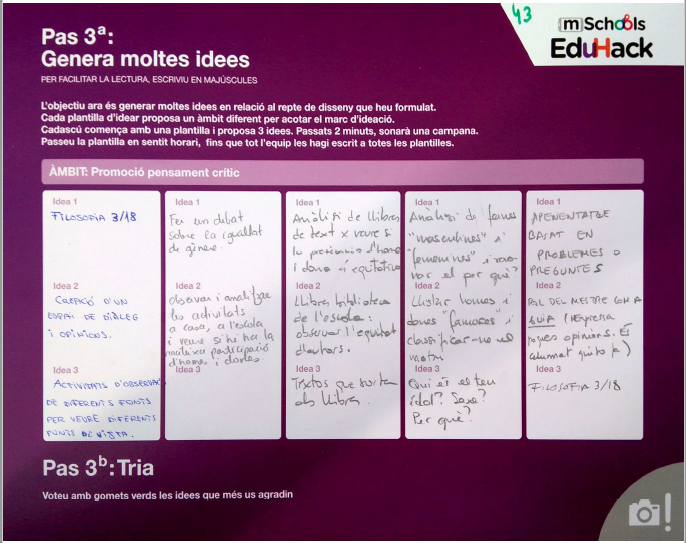 43
mSchools
EduHack
Pas 3ª:
Genera moltes idees
PER FACILITAR LA LECTURA, ESCRIVIU EN MAJÚSCULES
L'objectiu ara és generar moltes idees en relació al repte de disseny que heu formulat.
Cada plantilla d'idear proposa un àmbit diferent per acotar el marc d'ideació.
Cadascú comença amb una plantilla i proposa 3 idees. Passats 2 minuts, sonarà una campana.
Passeu la plantilla en sentit horari, fins que tot l'equip les hagi escrit a totes les plantilles.
ÀMBIT: Promoció pensament crític
Idea 1
FILOSOFIA 3/18
Idea 2
CREACIÓ D'UN
ESPAI DE DIÀLEG
I OPINIONS.
Idea 3
ACTIVITATS D'OBSERVAC
DE DIFERENTS FONTS
PER VEURE DIFERENTS
PUNTS DE VISTA.
Idea 1
Fer un debat
sobre la igualtat
de gènere.
Idea 2
Observar i analitzar
les activitats
a casa, a l'escola
i veure si hi ha la
mateixa participació
d'homes i dones.
Idea 3
Idea 1
Anàlisi de llibres
de text x veure si
la presència d'home
i dona és equitativa
Idea 2
Llibres biblioteca
de l'escola:
observar l'equitat
d'autors.
Idea 3
Textos que surten
als llibres.
Idea 1
Anàlisi de feines
"masculines" i
"femenines" i
el per què?
Idea 2
Llistar homes i
dones "famoses" i
classificar-ne el
motiu
Idea 3
Qui és el teu
ídol? Sexe?
Per què?
Idea 1
APRENENTATGE
BASAT EN
PROBLEMES O
PREGUNTES
Idea 2
ROL DEL MESTRE COM A
GUIA (
poques opinions. És
l'alumnat qui ho fa)
Idea 3
FILOSOFIA 3/18
Pas 3ᵇ: Tria
Voteu amb gomets verds les idees que més us agradin